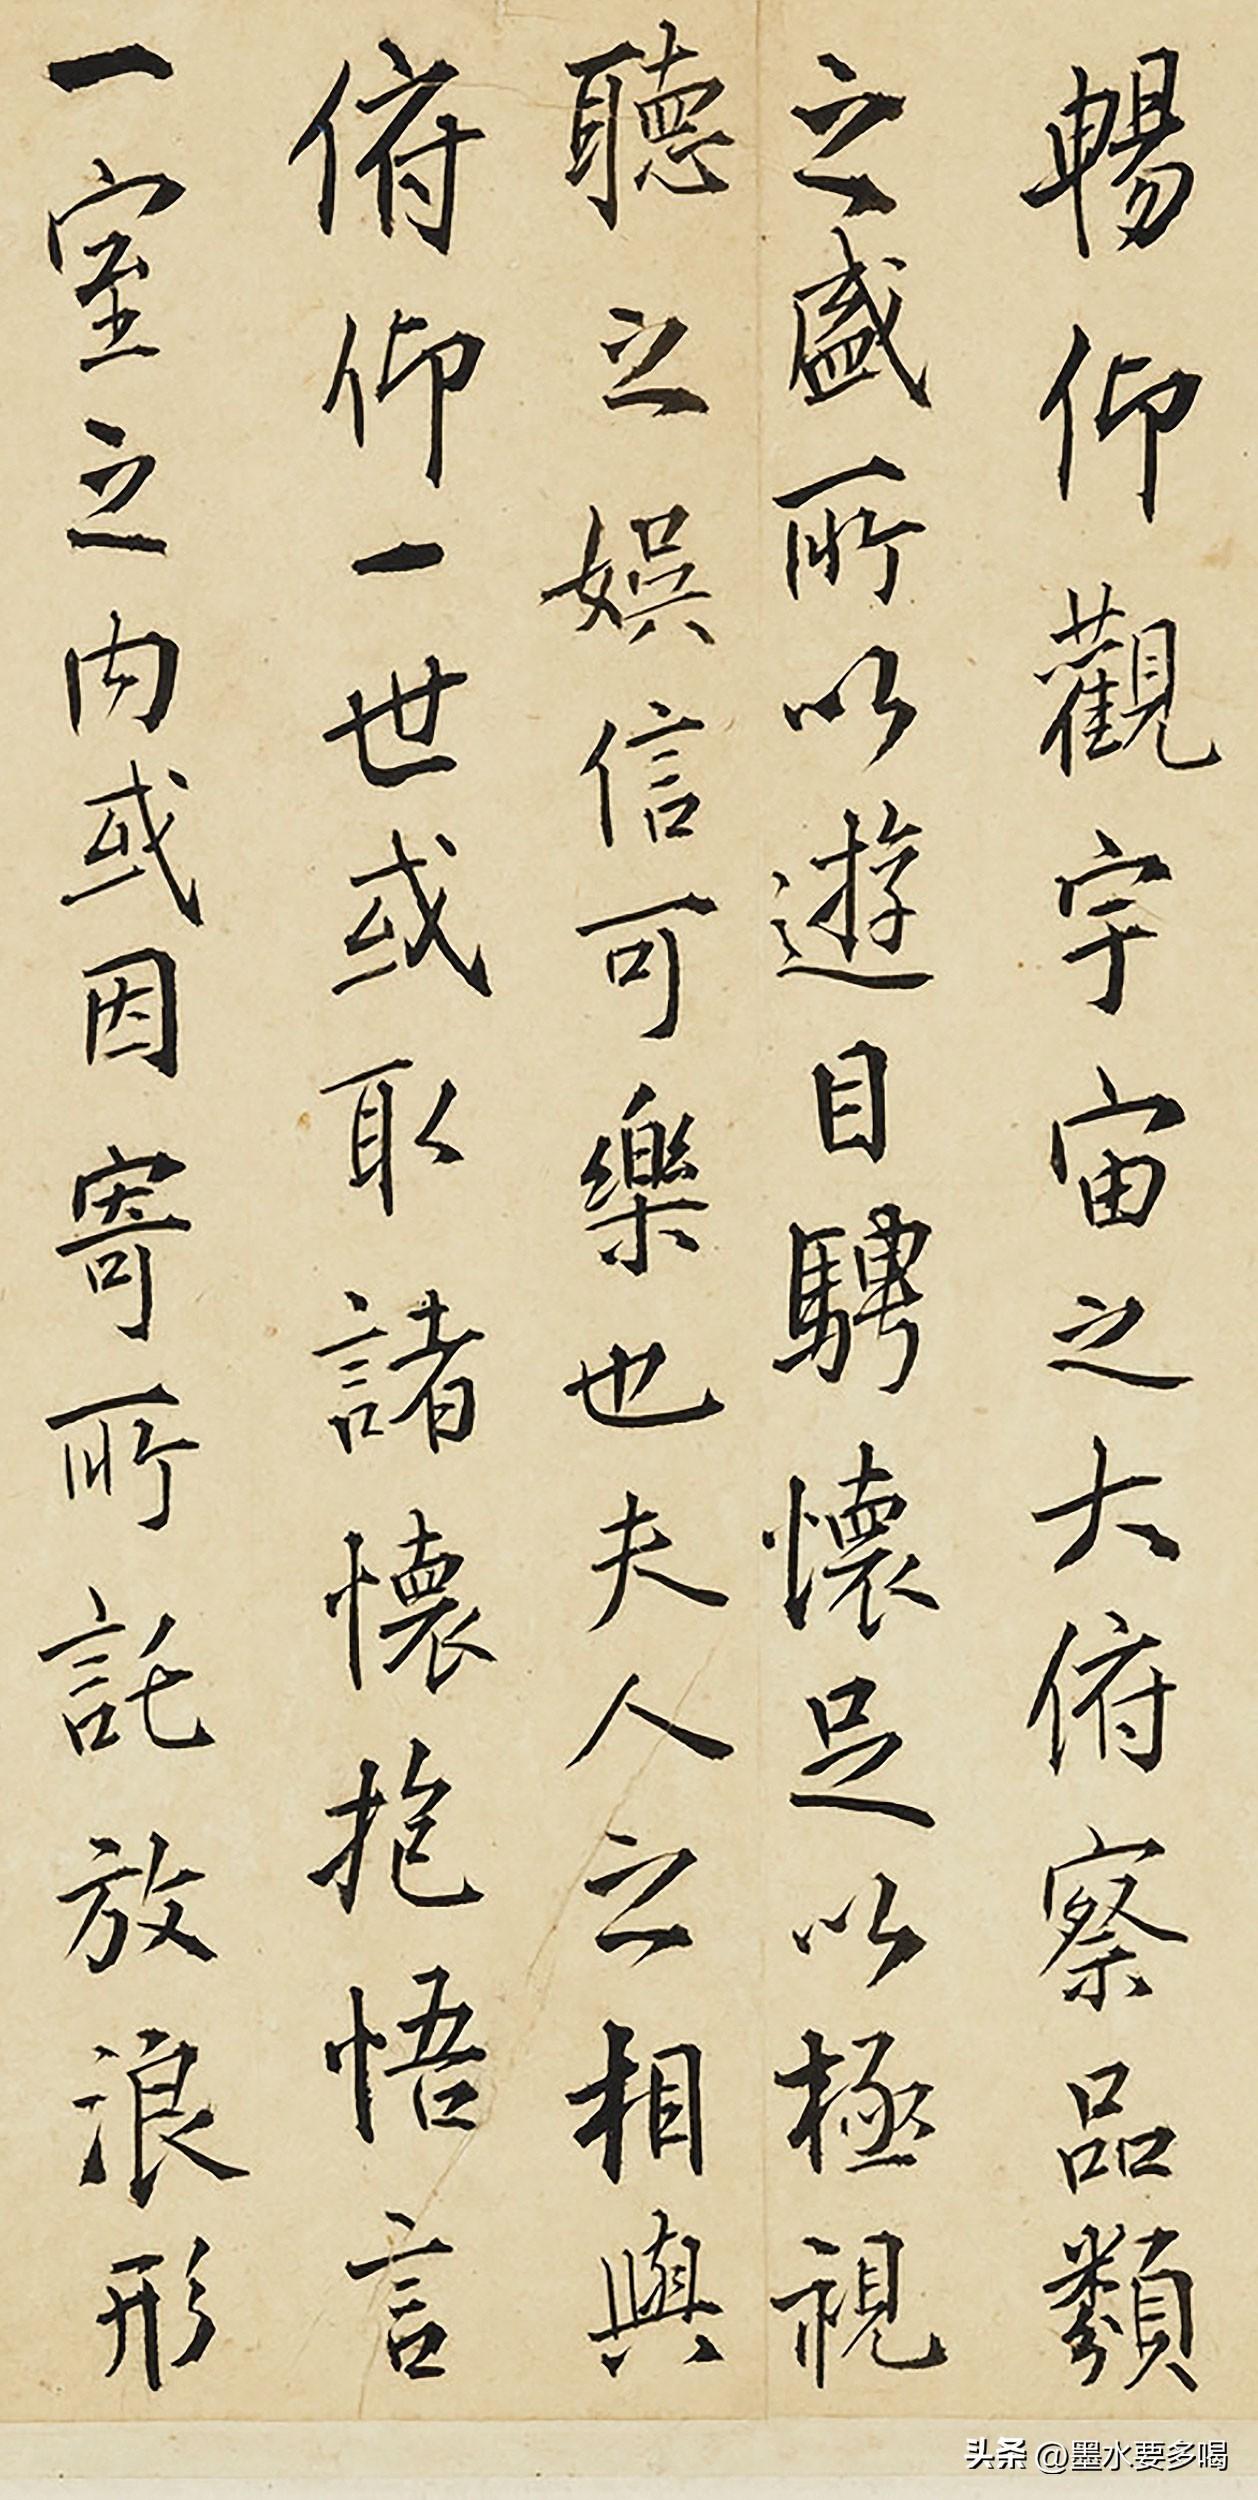 暢仰觀宇宙之大俯察品類
之盛所以遊目騁懷足以極視
聽之娛信可樂也夫人之相與
俯仰一世或取諸懷抱悟言
一室之内或因寄所託放浪形
头条 @墨水要多喝